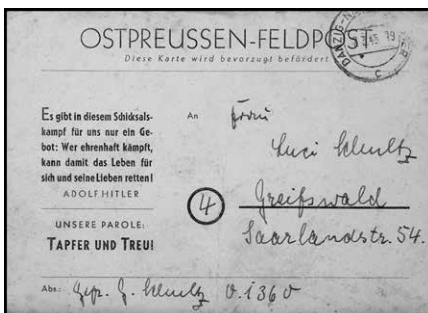 OSTPREUSSEN-FELDPOST
Diese Karte wird bevorzugt befördert
DANZIG-
Es gibt in diesem Schicksals-
kampf für uns nur ein Ge-
bot: Wer ehrenhaft kämpft,
kann damit das Leben für
sich und seine Lieben retten!
ADOLF HITLER
UNSERE PAROLE:
TAPFER UND TREU!
An
Frau
Luci Schultz
4
Greifswald
Saarlandstr. 54.
Abs.: Gefr. G. Schultz